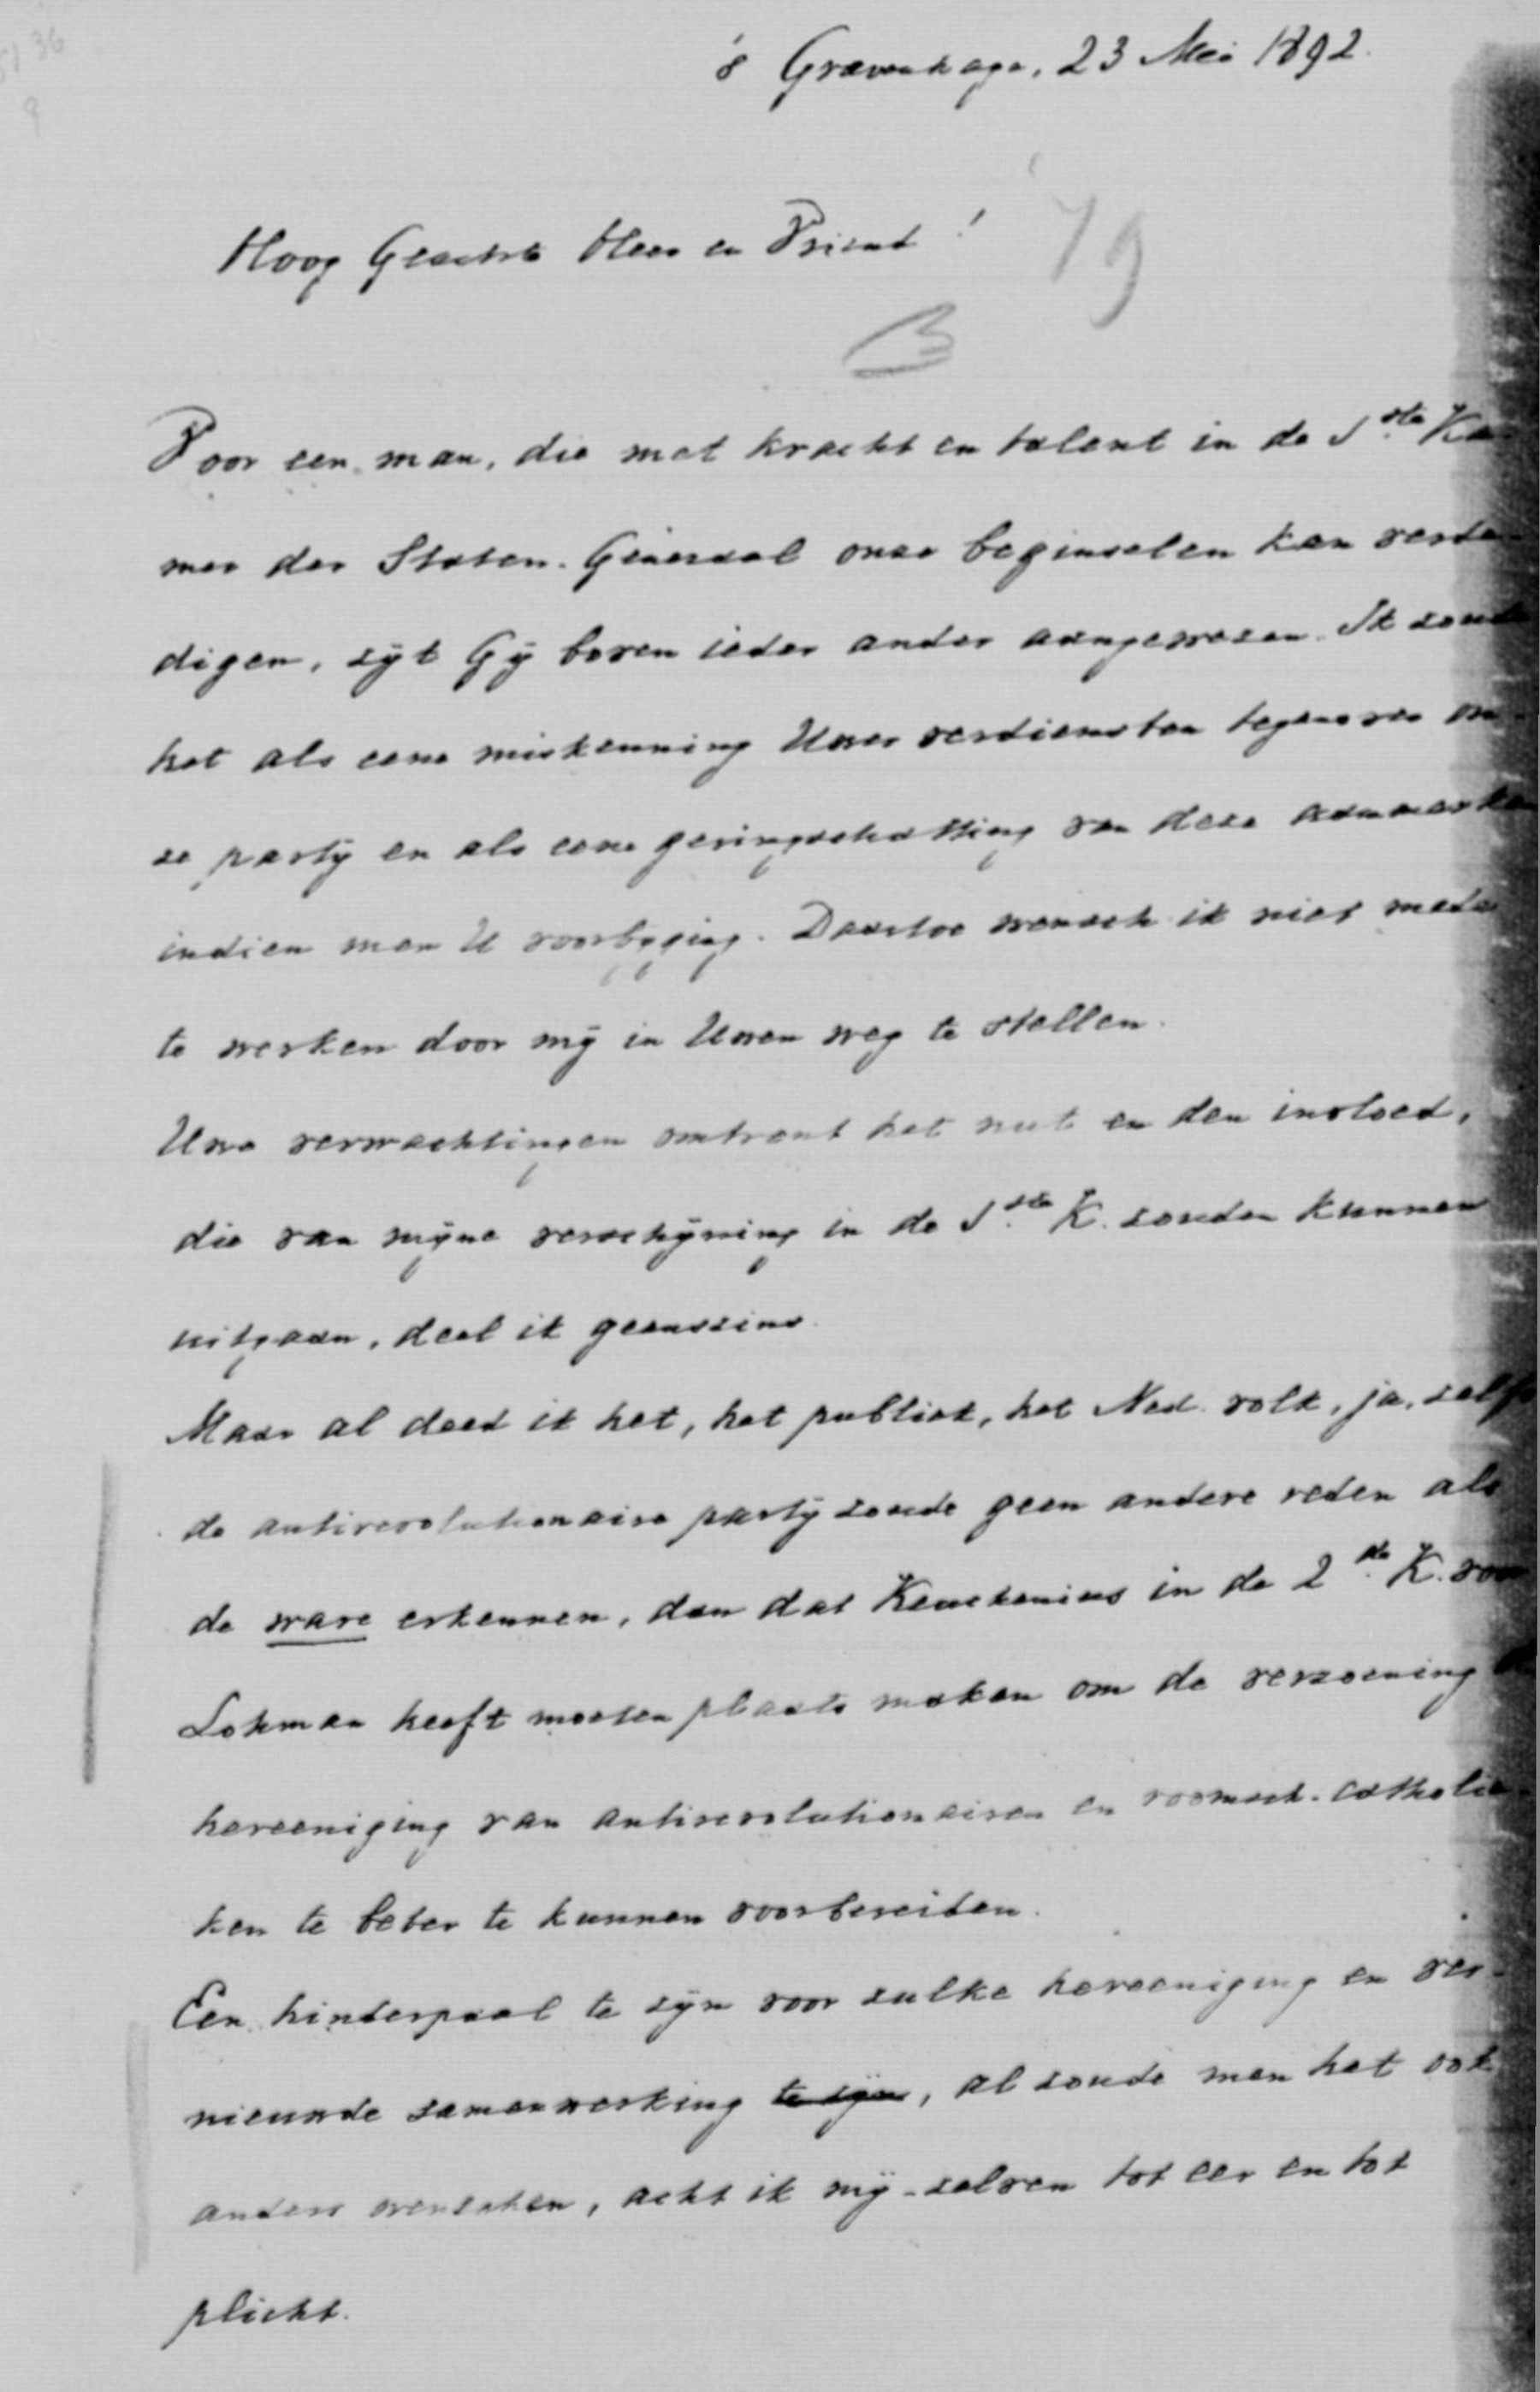 's Gravenhage, 23 Mei 1892.
Hoog Geachte Heer en Vriend!
79
Voor een man, die met kracht en talent in de 1ste Ka-
mer der Staten-Generaal onze beginselen kan verde-
digen, zyt Gy boven ieder ander aangewezen. Ik zoude
het als eene miskenning Uwer verdiensten tegenover on-
ze party en als eene geringschatting van deze aanmerken
indien men U voorbyging. Daartoe wensch ik niet mede
te werken door my in Uwen weg te stellen.
Uwe verwachtingen omtrent het nut en den invloed,
die van myne verschyning in de 1ste K. zouden kunnen
uitgaan, deel ik geenszins.
Maar al deed ik het, het publiek, het Ned. volk, ja, zelfs
de antirevolutionaire party zoude geen andere reden als
de ware erkennen, dan dat Keuchenius in de 2de K. voor
Lohman heeft moeten plaats maken om de verzoening
hereeniging van antirevolutionairen en roomsch-catholie-
ken te beter te kunnen voorbereiden.
Een hinderpaal te zyn voor zulke hereeniging en ver-
nieuwde samenwerking te zyn, al zoude men het ook
anders wenschen, acht ik my-zelven tot eer en tot
plicht.